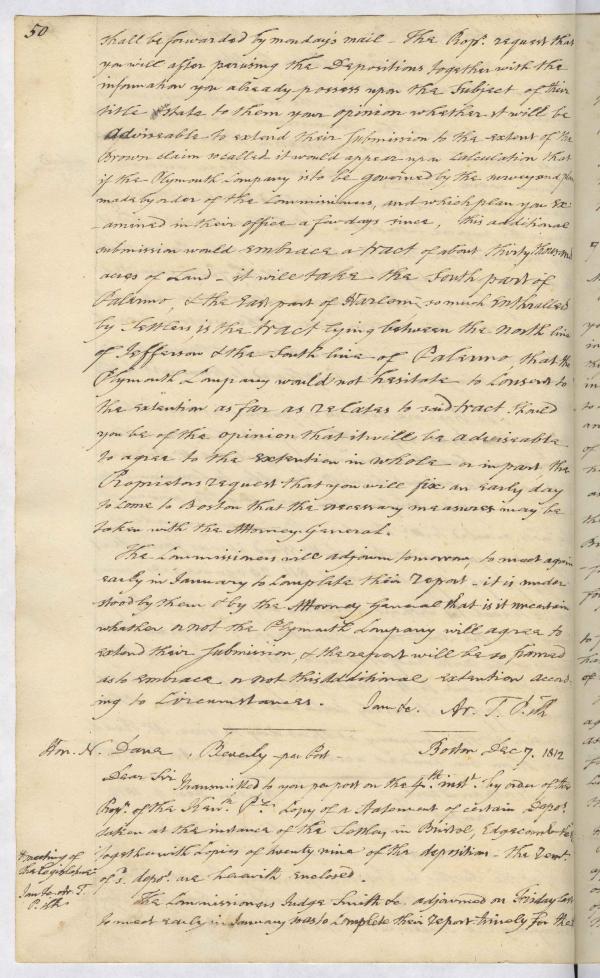 50
shall be forwarded by monday's mail – The Propr. request that
you will after perusing the Depositions together with the
information you already possess upon the Subject of their
title state to them your opinion whether it will be
adviseable to extend their Submission to the extent of the
Brown claim so called it would appear upon Calculation that
if the Plymouth Company is to be governed by the survey and plan
made by order of the Commissioners, and which plan you Ex-
-amined in their office a few days since, this additional
submission would embrace a tract of about thirty thousand
acres of Land – it will take the South part of
Palermo, & the East part of Harlom so much enthralled
by Settlers, is the tract lying between the north line
of Jefferson & the South line of Palermo, that the
Plymouth Company would not hesitate to Consent to
the extention as far as relates to said tract. Should
you be of the opinion that it will be adviseable
to agree to the extention in whole or in part the
Proprietors request that you will fix an early day
to come to Boston that the necessary measures may be
taken with the Attorney General.
The Commissioners will adjourn tomorrow, to meet again
early in January to Complete their report – it is under
stood by them & by the Attorney General that is it uncertain
whether or not the Plymouth Company will agree to
extend their submission, & the report will be so framed
as to embrace or not this Additional extention accord-
ing to Circumstances. I am &c. Ar. T. P.
Hon. N. Dane, Beverly – per Post – Boston Dec 7. 1812
Dear Sir
Transmitted to you per post on the 4th. inst. by order of the
Propr. of the Copy of a Statement of certain Depos.
taken at the instance of the Settlers in Bristol, Edgecomb &c
together with Copies of twenty nine of the depositions – The
of sd. depos. are herewith enclosed.
The Commissioners Judge Smith &c. adjourned on Friday last
to meet early in January was to Complete their report timely for the
meeting of
the Legislature
I am &c Ar. T.
P.